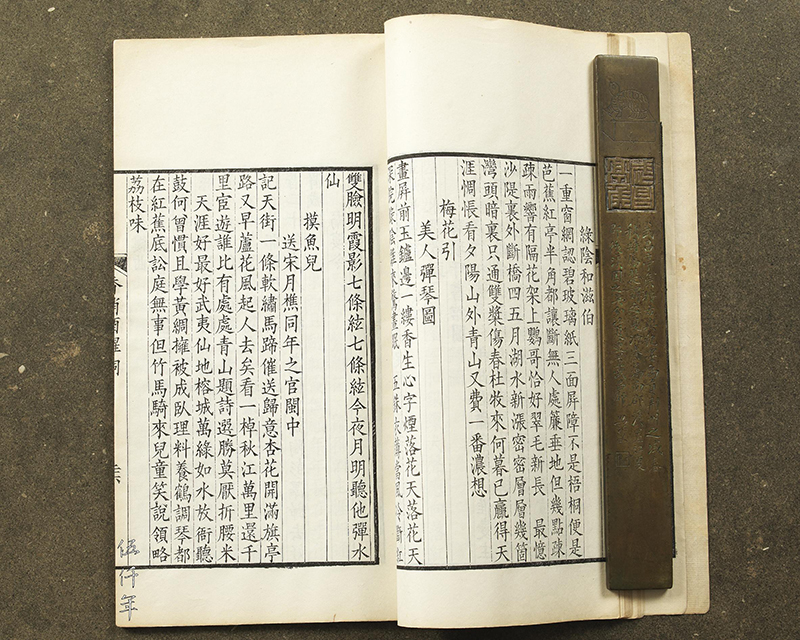 綠陰和滋伯
一重窗網認碧玻璃紙三面屏障不是梧桐便是
芭蕉紅亭半角都讓斷無人處簾垂地但幾點疎
疎雨響有隔花架上鸚哥恰好翠毛新長　最憶
沙隄裏外斷橋四五月湖水新漲密密層層幾箇
灣頭暗裏只通雙槳傷春杜牧來何暮已贏得天
涯惆悵看夕陽山外青山又費一番濃想
梅花引
美人彈琴圖
畫屏前玉鑪邊一縷香生心字煙落花天落花天
雙臉明霞影七條絃七條絃今夜月明聽他彈水
仙
摸魚兒
送宋月樵同年之官閩中
記天街一條軟繡馬蹄催送歸意杏花開滿旗亭
路又早蘆花風起人去矣看一棹秋江萬里還千
里宦遊誰比有處處青山題詩選勝莫厭折腰米
天涯好最好武夷仙地榕城萬綠如水放衙聽
鼓何曾慣且學黃綢擁被成臥理料養鶴調琴都
在紅蕉底訟庭無事但竹馬騎來兒童笑說領略
荔枝味
伍仟年